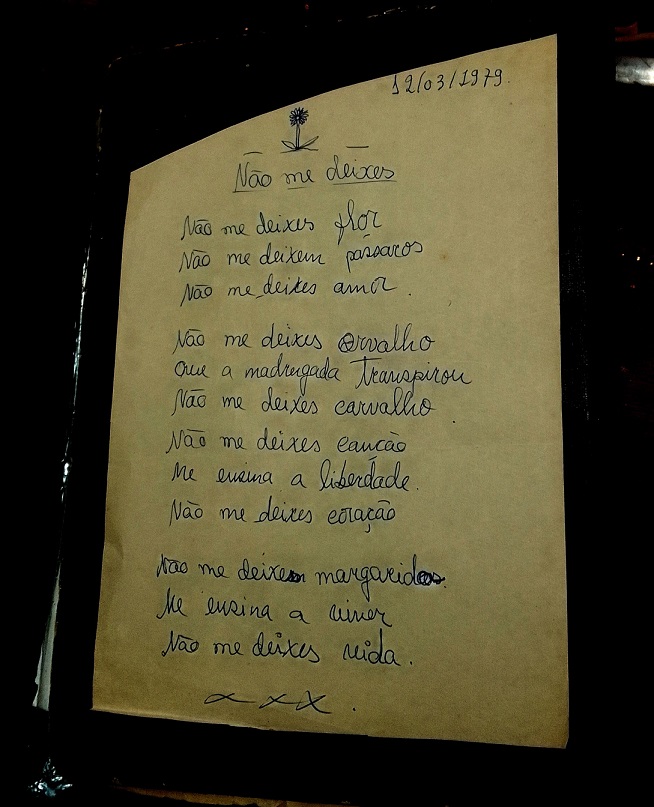 12/03/1979.
Não me deixes
Não me deixes flor
Não me deixem pássaros
Não me deixes amor.
Não me deixes orvalho
Que a madrugada transpirou
Não me deixes carvalho
Não me deixes canção
Me ensina a liberdade.
Não me deixes coração
Não me deixem margaridas.
Me ensina a viver
Não me deixes vida.
xxx.